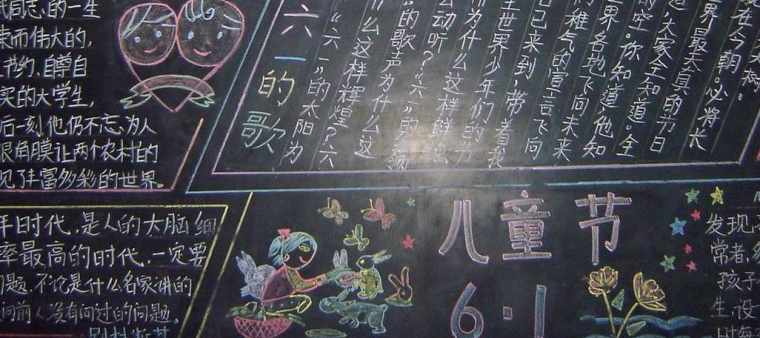 同志,的一生
而伟大的,
节约,自尊自
的大学生,
后一刻他仍不忘,为人
眼角膜让两个农村的
见了丰富多彩的世界。
六一的歌
“六一”的太阳为
什么这样辉煌?“六
的歌声为什么这
么动听?“六”的颜
为什么这样鲜
全世界少年们的节
日已来到,带着我
们稚气的宣言飞向
世界各地飞向未来
的空。你知道。他知
道,大家全知道。全
世界最天真的节日
在今朝。必将六
年时代,是人的大脑细
率最高的时代,一定要
问题,不论是什么名家讲的
问前人没有问过的问题。
儿童节
6·1
发现
常者,
孩子
生,设